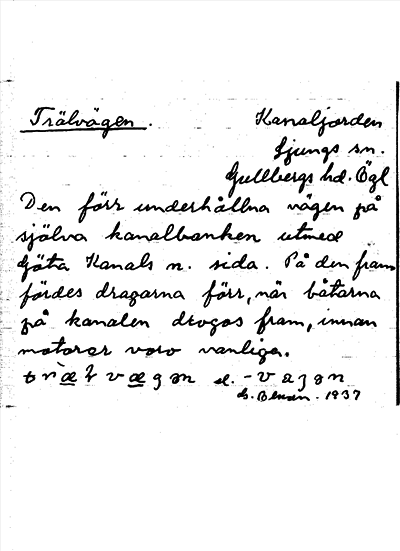 Trälvägen. Kanaljorden
Ljungs sn.
Gullbergs hd. Ögl
Den förr underhållna vägen på
själva kanalbanken utmed
Göta Kanals n. sida. På den fram
fördes dragarna förr, när båtarna
på kanalen drogos fram, innan
motorer voro vanliga.
el.
1937